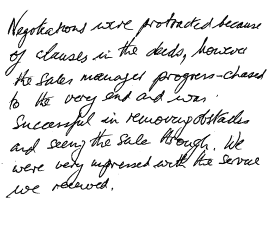 Negotiations were protracted because
of clauses in the deeds, however
the sales manager progress-chased
to the very end and was
successful in removing obstacles
and seeing the sale through. We
were very impressed with the service
we received.